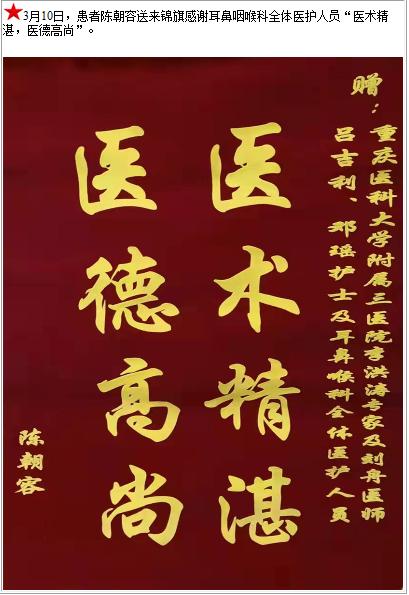 ★3月10日，患者陈朝容送来锦旗感谢耳鼻咽喉科全体医护人员“医术精
湛，医德高尚”。
赠：
重庆医科大学附属三医院李洪涛专家及刘舟医师
吕吉利、邓瑶护士及耳鼻喉科全体医护人员
医术精湛
医德高尚
陈朝容